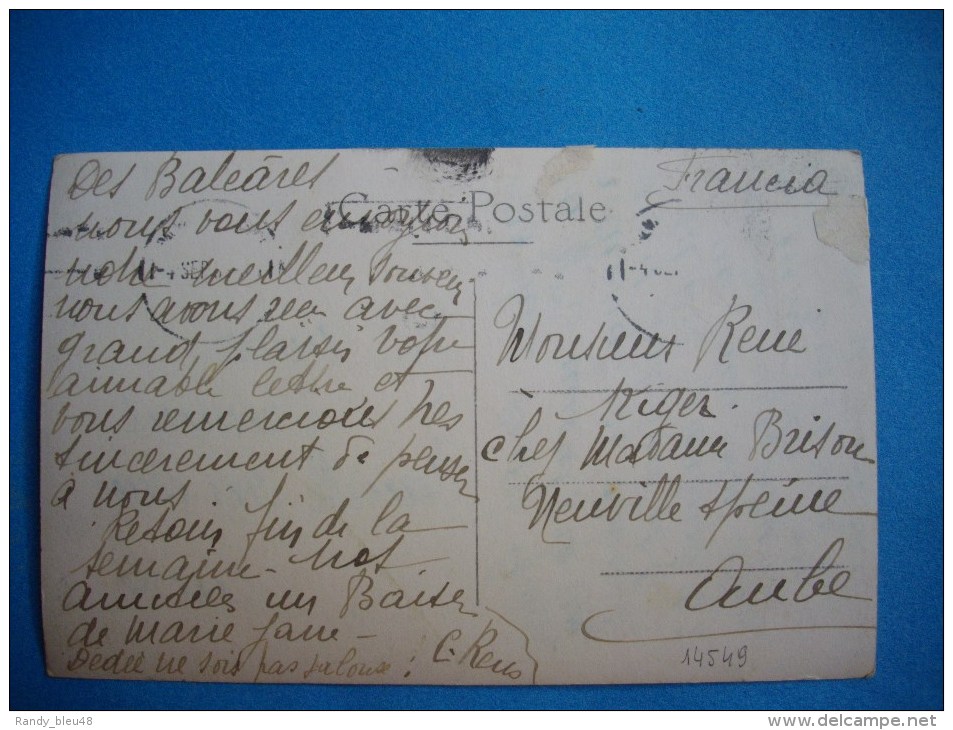 Des Baléares
nous vous envoyons
notre meilleur souvenir
nous avons reçu avec
grand plaisir votre
aimable lettre et
vous remercions très
sincerement de penser
à nous.
Retour fin de la
semaine - nos
amitiés un Baiser
de Marie Jane -
Dédée ne sois pas jalouse !
C. Rens
Carte Postale
Francia
4 SEP
Monsieur René
Kiger.
chez Madame Brison
Neuville s/Seine
Aube
14549
Randy_bleu48
www.delcampe.net